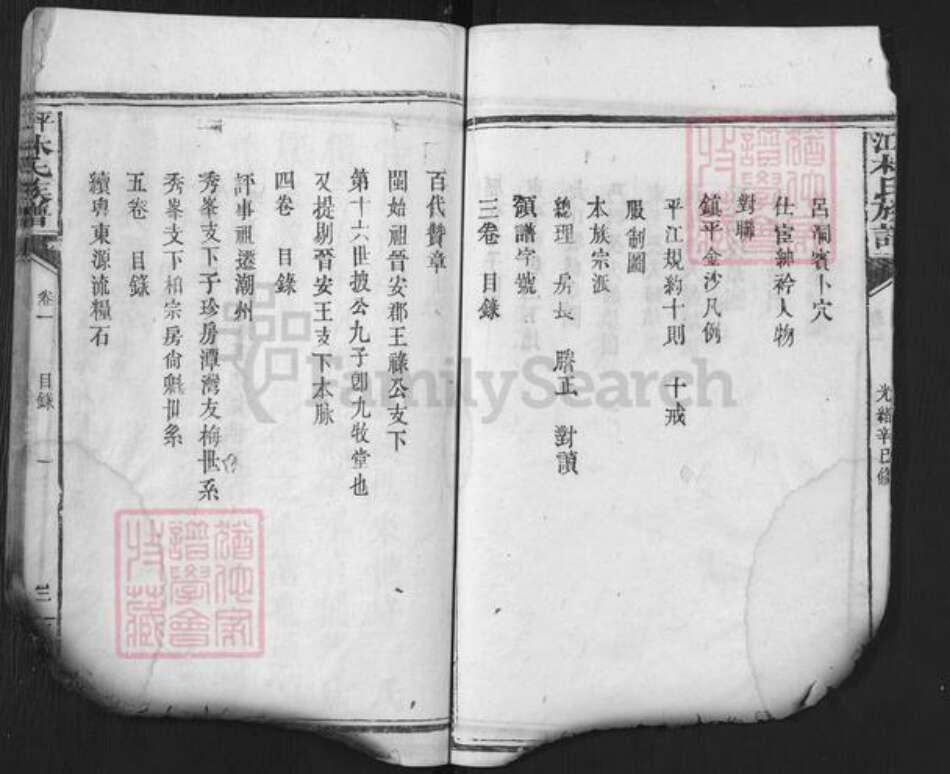 江林氏族譜
光緒辛巳修
呂洞賓卜穴
仕宦紳衿人物
對聯
鎮平金沙凡例
平江規約十則　十戒
服制圖
本族宗派
總理　房長　謄正　對讀
領譜字號
三卷　目錄
百代贊章
閩始祖晉安郡王祿公支下
第十六世披公九子卽九牧堂也
又提剔晉安王支下本脉
四卷　目錄
評事祖遷潮州
秀峯支下子珍房潭灣友梅世系
秀峯支下柏宗房尙魁世系
五卷　目錄
續粵東源流糧石
平
林氏族譜
卷一
目錄
一
三
譜學會
特藏
FamilySearch